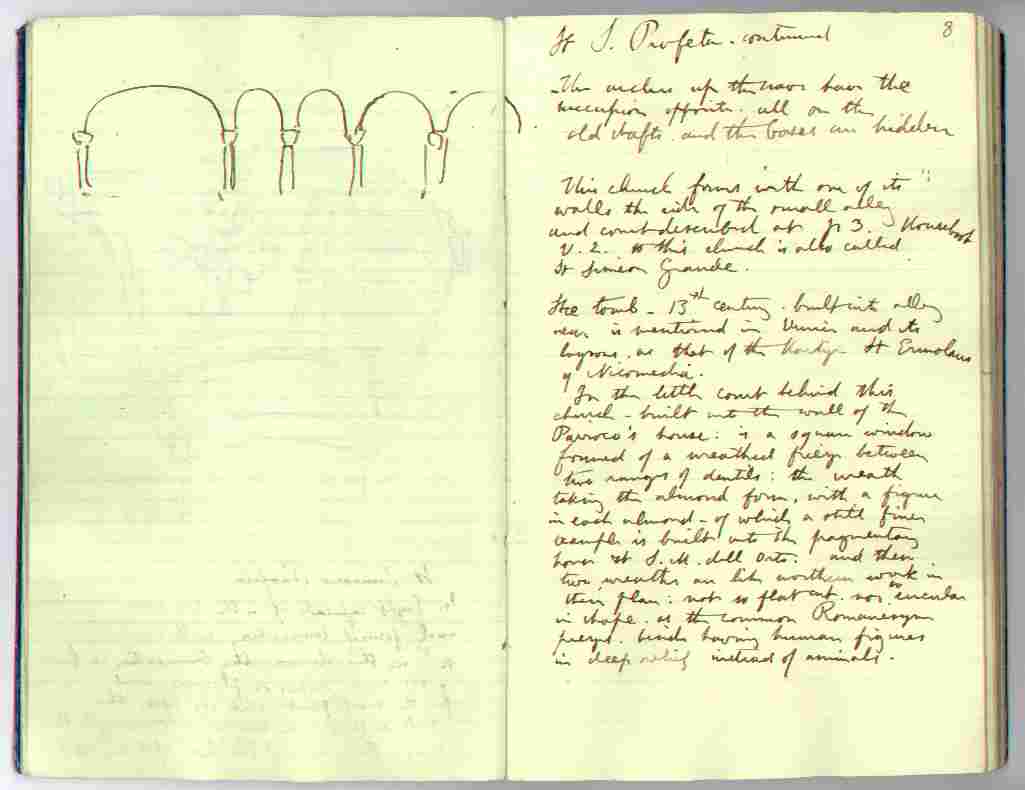 8
St S. Profeta. continued
The arches up the nave have the
succession opposite. all on the
old shafts. and the bases are hidden
This church forms with one of its
walls the side of the small alley
and court described at p 3. Housebook
V. 2. this church is also called
St Simeon Grande.
The tomb - 13th century. built into alley
near is mentioned in Venice and its
lagoons. as that of the Martyr St Ermolaus
of Nicomedia.
In the little court behind this
church - built into the wall of the
Parroco's house: is a square window
formed of a wreathed frieze between
two ranges of dentils: the wreath
taking the almond form, with a figure
in each almond - of which a still finer
example is built into the fragmentary
house at S. M. dell Orto: and these
two wreaths are like northern work in
their plan: not so flat cut. nor so circular
in shape. as the common Romanesque
friezes. besides having human figures
in deep relief instead of animals.